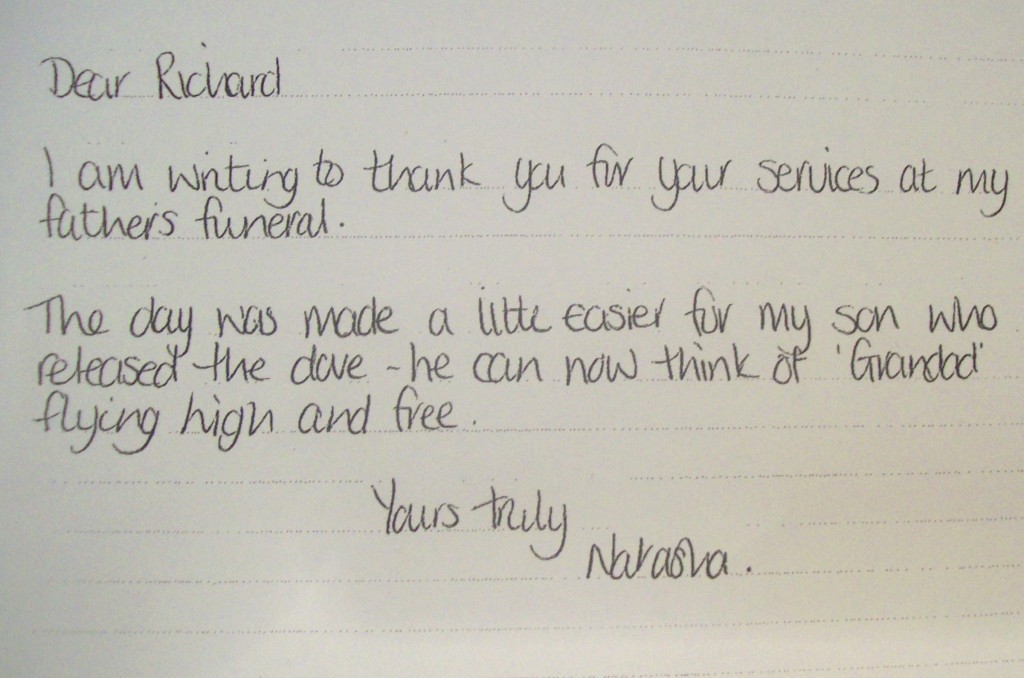 Dear Richard
I am writing to thank you for your services at my
father's funeral.
The day was made a little easier for my son who
released the dove - he can now think of 'Grandad'
flying high and free.
Yours truly
Natasha.